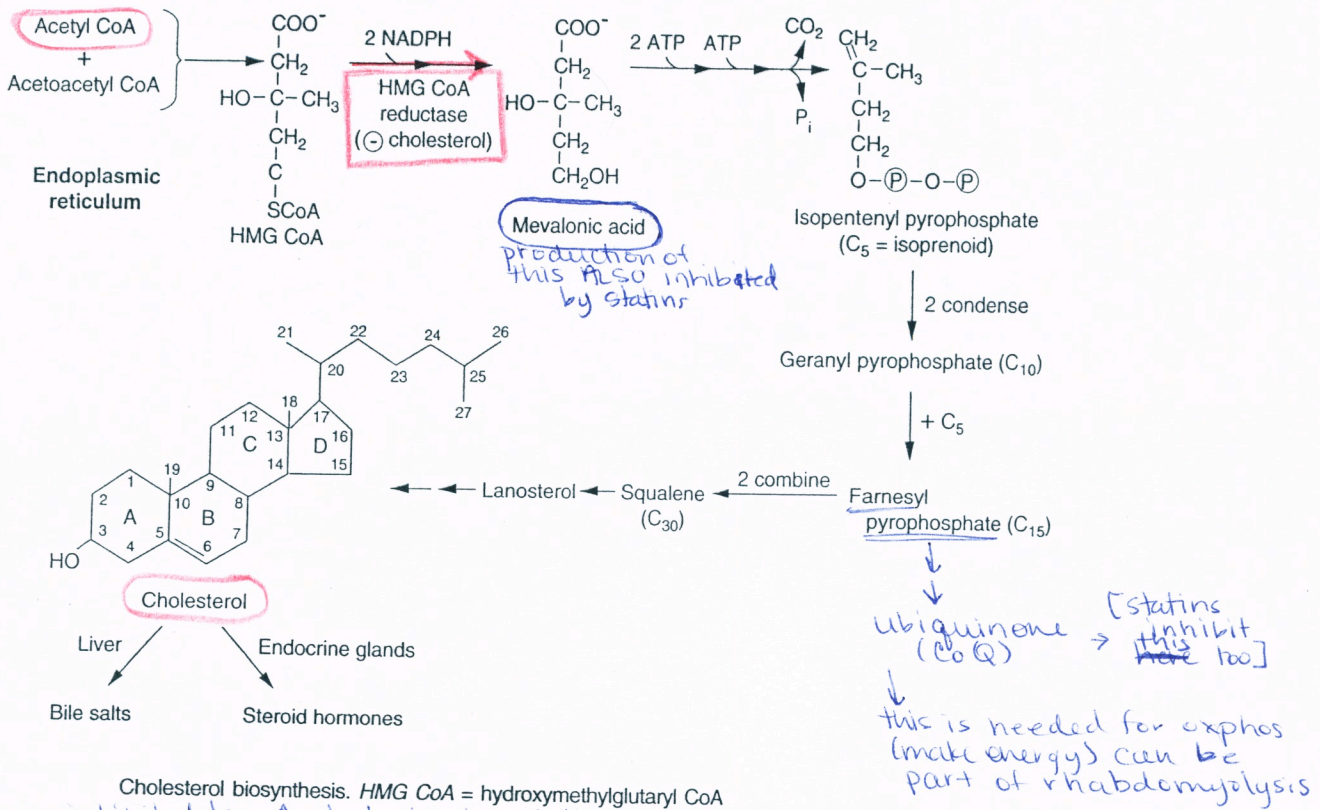 Acetyl CoA
+
Acetoacetyl CoA
Endoplasmic
reticulum
COO⁻
CH₂
HO-C-CH₃
CH₂
C
SCoA
HMG CoA
2 NADPH
HMG CoA
reductase
(⊖ cholesterol)
COO⁻
CH₂
HO-C-CH₃
CH₂
CH₂OH
Mevalonic acid
production of
this ALSO inhibited
by statins
2 ATP ATP
CO₂
Pᵢ
CH₂
C-CH₃
CH₂
CH₂
O-Ⓟ-O-Ⓟ
Isopentenyl pyrophosphate
(C₅ = isoprenoid)
2 condense
Geranyl pyrophosphate (C₁₀)
+ C₅
Farnesyl
pyrophosphate (C₁₅)
2 combine
Squalene
(C₃₀)
Lanosterol
21 22 24 26
20 23 25
27
18
12 17
11 13 16
C D
14 15
19
1 9
2 10 8
A B
3 5 7
4 6
HO
Cholesterol
Liver
Endocrine glands
Bile salts
Steroid hormones
ubiquinone
(CoQ)
→ [statins
inhibit
this
here too]
this is needed for oxphos
(make energy) can be
part of rhabdomyolysis
Cholesterol biosynthesis. HMG CoA = hydroxymethylglutaryl CoA